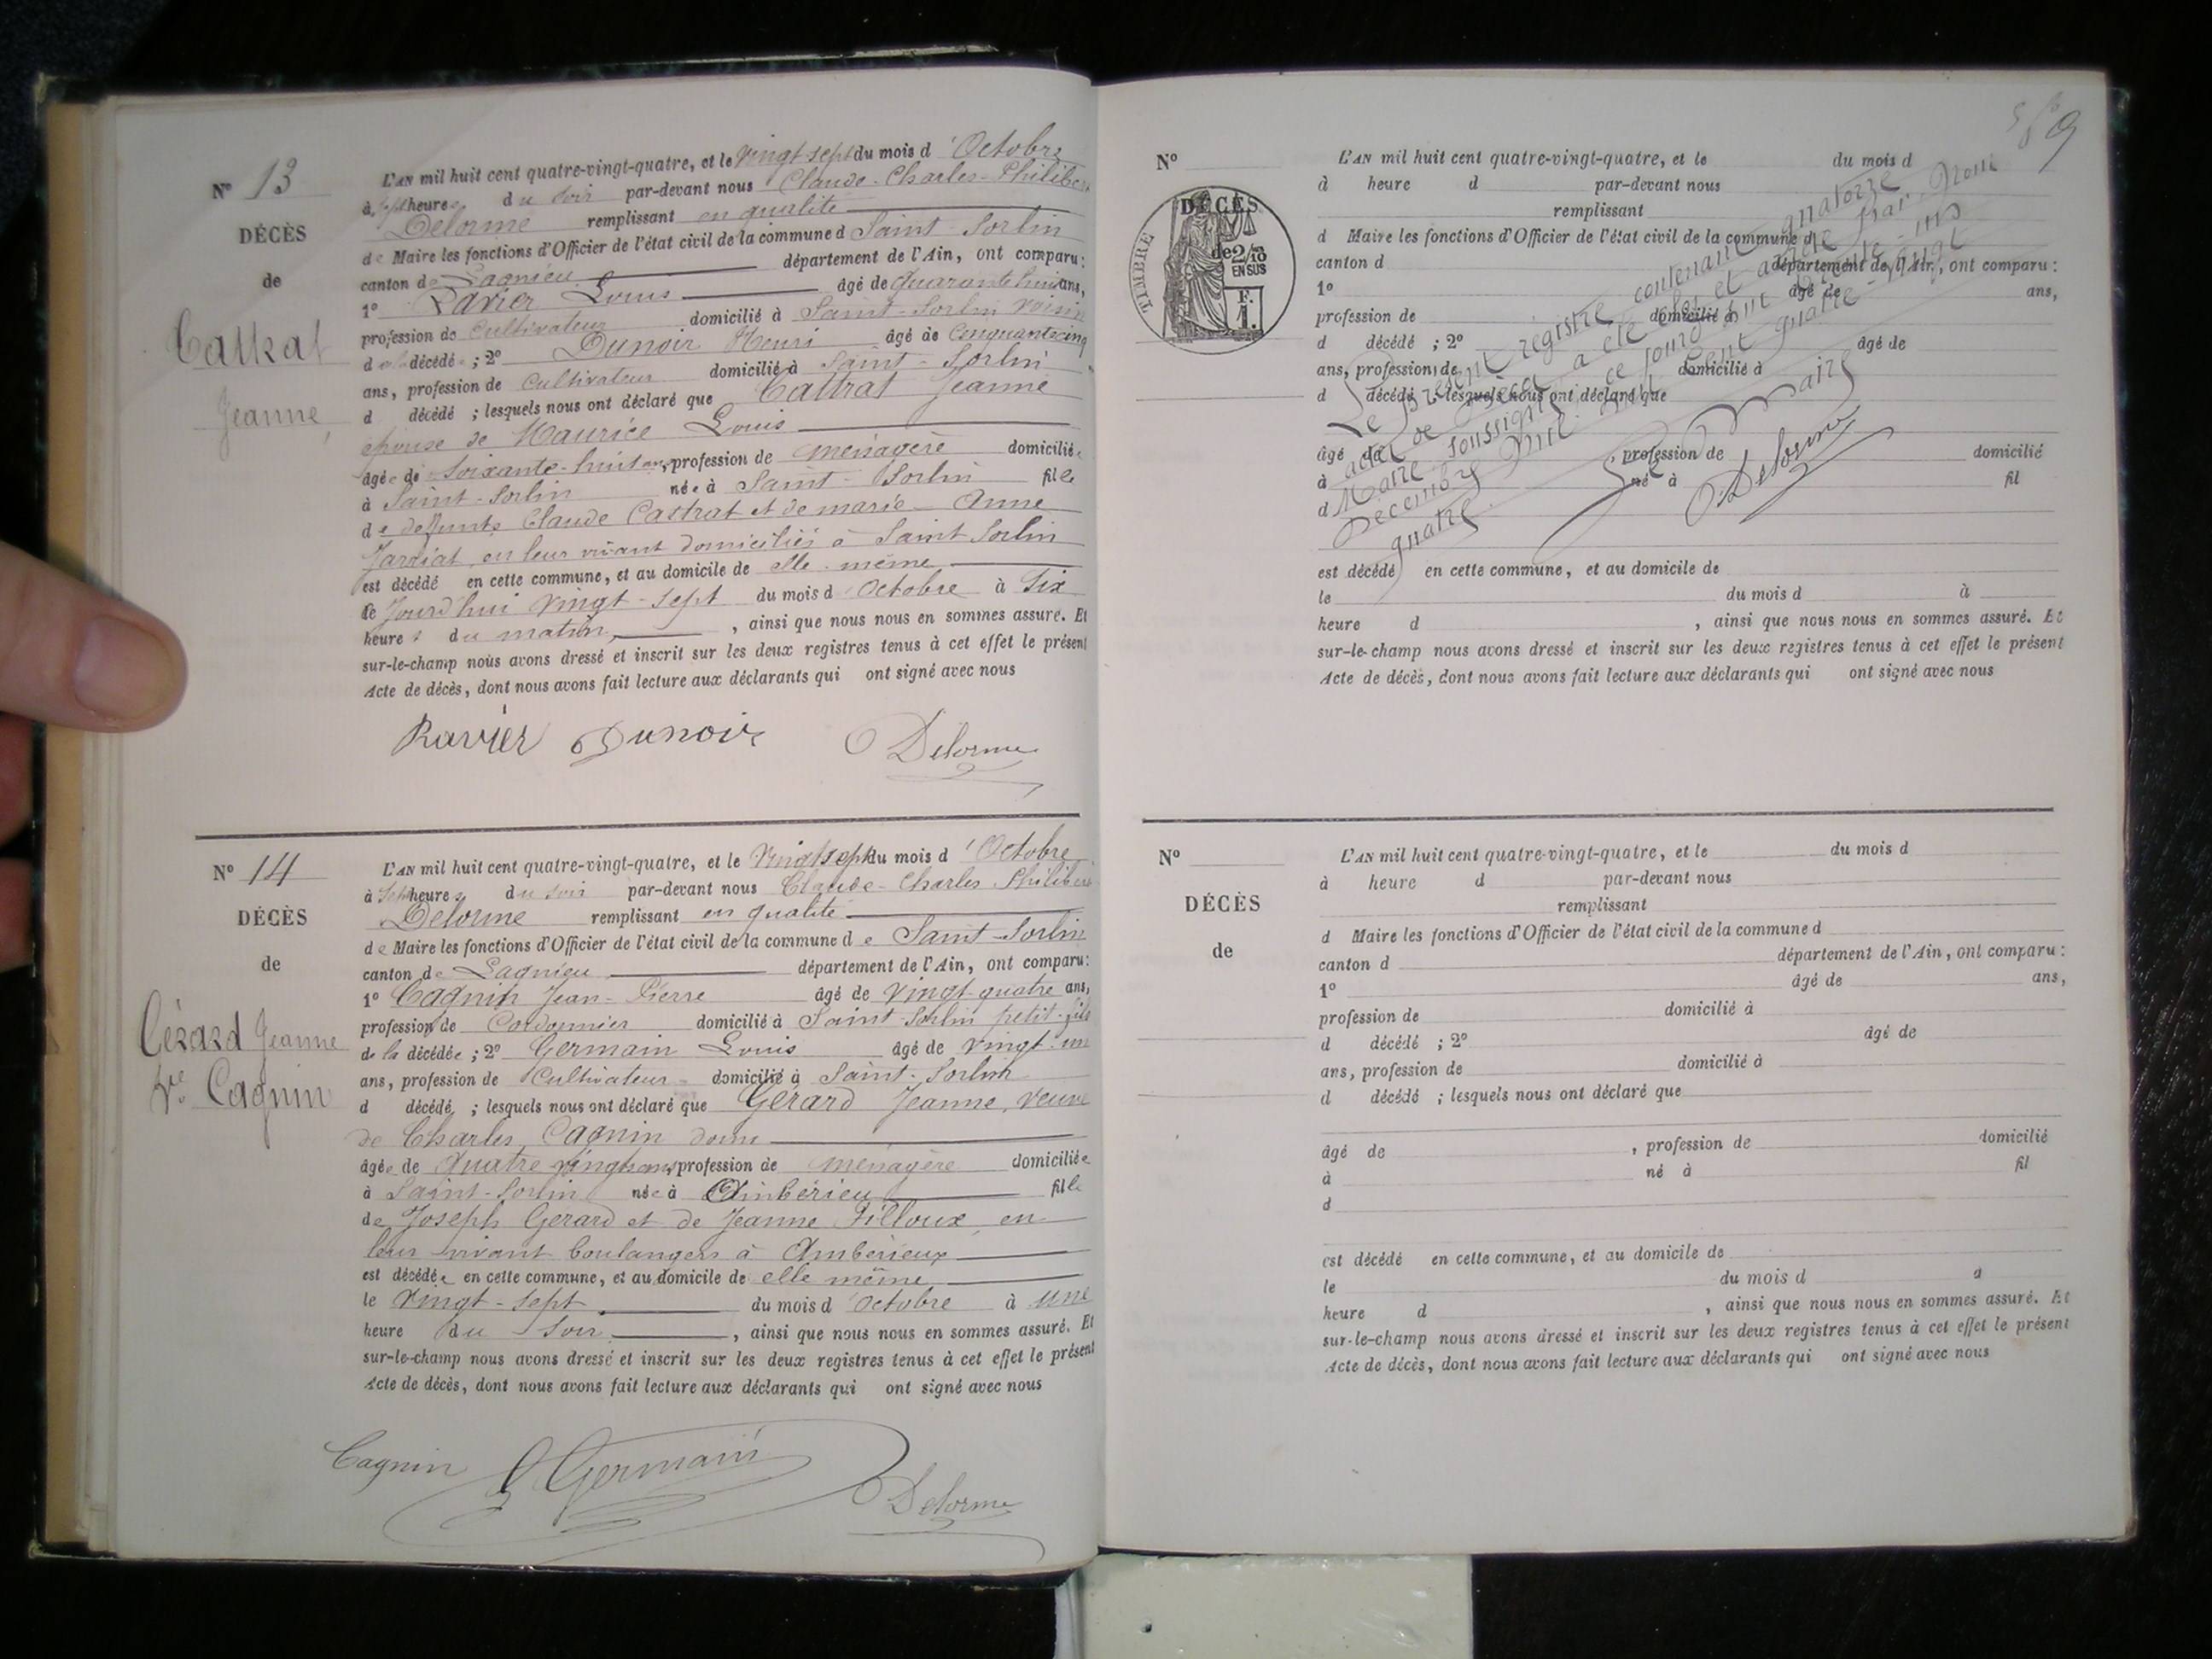 N° 13
DÉCÈS
de
Cattrat
Jeanne,
L'AN mil huit cent quatre-vingt-quatre, et le vingt sept du mois d'Octobre
à sept heures du soir par-devant nous Claude-Charles-Philibert
Delorme remplissant en qualité
de Maire les fonctions d'Officier de l'état civil de la commune d Saint-Sorlin
canton de Lagnieu département de l'Ain, ont comparu:
1° Ravier Louis âgé de quarante huit ans,
profession de cultivateur domicilié à Saint-Sorlin voisin
d la décédée; 2° Dunoir Henri âgé de cinquante cinq
ans, profession de cultivateur domicilié à Saint-Sorlin
d décédé; lesquels nous ont déclaré que Cattrat Jeanne
épouse de Maurice Louis
âgée de soixante-huit ans, profession de ménagère domiciliée
à Saint-Sorlin née à Saint-Sorlin fille
de defunts Claude Castrat et de marie Anne
Jarriat en leur vivant domiciliés à Saint Sorlin
est décédé en cette commune, et au domicile de elle-même
le jourd'hui vingt-sept du mois d'Octobre à six
heures du matin, ainsi que nous nous en sommes assuré. Et
sur-le-champ nous avons dressé et inscrit sur les deux registres tenus à cet effet le présent
Acte de décès, dont nous avons fait lecture aux déclarants qui ont signé avec nous
Ravier Dunoir Delorme
N° 14
DÉCÈS
de
Gérard Jeanne
Ve Cagnin
L'AN mil huit cent quatre-vingt-quatre, et le vingt sept du mois d'Octobre
à sept heures du soir par-devant nous Claude-Charles-Philibert
Delorme remplissant en qualité
de Maire les fonctions d'Officier de l'état civil de la commune de Saint-Sorlin
canton de Lagnieu département de l'Ain, ont comparu:
1° Cagnin Jean-Pierre âgé de vingt-quatre ans,
profession de Cordonnier domicilié à Saint-Sorlin petit-fils
de la décédée; 2° Germain Louis âgé de vingt-un
ans, profession de Cultivateur domicilié à Saint-Sorlin
d décédé; lesquels nous ont déclaré que Gérard Jeanne, veuve
de Charles Cagnin
âgée de Quatre vingts ans, profession de ménagère domiciliée
à Saint-Sorlin née à Ambérieu fille
de Joseph Gerard et de Jeanne Filloux en
leur vivant boulangers à Ambérieux
est décédée en cette commune, et au domicile de elle même
le vingt-sept du mois d'octobre à une
heure du soir, ainsi que nous nous en sommes assuré. Et
sur-le-champ nous avons dressé et inscrit sur les deux registres tenus à cet effet le présent
Acte de décès, dont nous avons fait lecture aux déclarants qui ont signé avec nous
Cagnin L Germain Delorme
N°
TIMBRE
DÉCÈS
de 2/10
EN SUS
F.
1.
L'AN mil huit cent quatre-vingt-quatre, et le du mois d
à heure d par-devant nous
remplissant
d Maire les fonctions d'Officier de l'état civil de la commune d
canton d département de l'Ain, ont comparu:
1° âgé de ans,
profession de domicilié à
d décédé; 2° âgé de
ans, profession de domicilié à
d décédé; lesquels nous ont déclaré que
âgé de, profession de domicilié
à né à fil
d
Le présent registre contenant quatorze
actes de décès a été clos et arrêté par nous
Maire soussigné ce jourd'hui trente-un
Décembre mil huit cent quatre-vingt
quatre.
Le Maire
Delorme
est décédé en cette commune, et au domicile de
le du mois d à
heure d, ainsi que nous nous en sommes assuré. Et
sur-le-champ nous avons dressé et inscrit sur les deux registres tenus à cet effet le présent
Acte de décès, dont nous avons fait lecture aux déclarants qui ont signé avec nous
N°
DÉCÈS
de
L'AN mil huit cent quatre-vingt-quatre, et le du mois d
à heure d par-devant nous
remplissant
d Maire les fonctions d'Officier de l'état civil de la commune d
canton d département de l'Ain, ont comparu:
1° âgé de ans,
profession de domicilié à
d décédé; 2° âgé de
ans, profession de domicilié à
d décédé; lesquels nous ont déclaré que
âgé de, profession de domicilié
à né à fil
d
est décédé en cette commune, et au domicile de
le du mois d à
heure d, ainsi que nous nous en sommes assuré. Et
sur-le-champ nous avons dressé et inscrit sur les deux registres tenus à cet effet le présent
Acte de décès, dont nous avons fait lecture aux déclarants qui ont signé avec nous